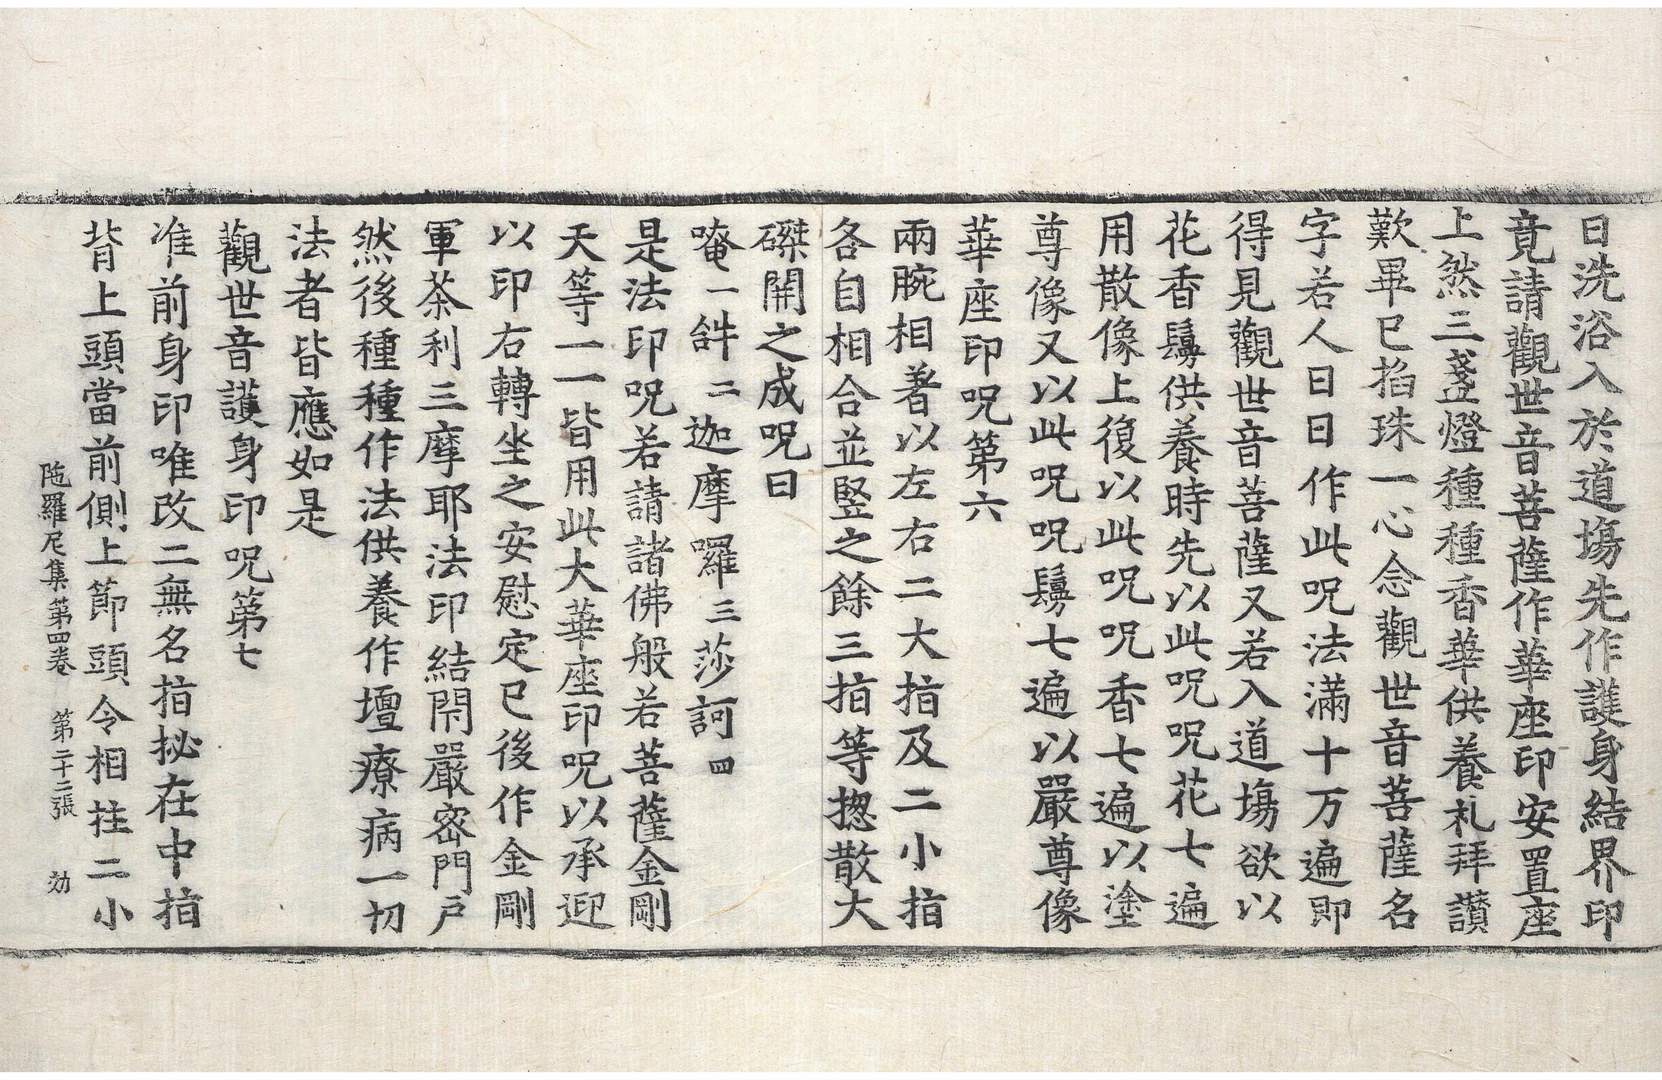 日洗浴入於道場先作護身結界印
竟請觀世音菩薩作華座印安置座
上然三盞燈種種香華供養札拜讃
歎畢已掐珠一心念觀世音菩薩名
字若人日日作此呪法滿十万遍即
得見觀世音菩薩又若入道塲欲以
花香鬘供養時先以此呪呪花七遍
用散像上復以此呪呪香七遍以塗
尊像又以此呪呪鬘七遍以嚴尊像
華座印呪第六
兩腕相著以左右二大指及二小指
各自相合並竪之餘三指等揔散大
磔開之成呪曰
唵一𤙖二迦摩囉三莎訶四
是法印呪若請諸佛般若菩薩金剛
天等一一皆用此大華座印呪以承迎
以印右轉坐之安慰定已後作金剛
軍茶利三摩耶法印結閇嚴密門戶
然後種種作法供養作壇療病一切
法者皆應如是
觀世音護身印呪第七
准前身印唯改二無名指拟在中指
背上頭當前側上節頭令相拄二小
陁羅尼集第四卷 第二十二張 効